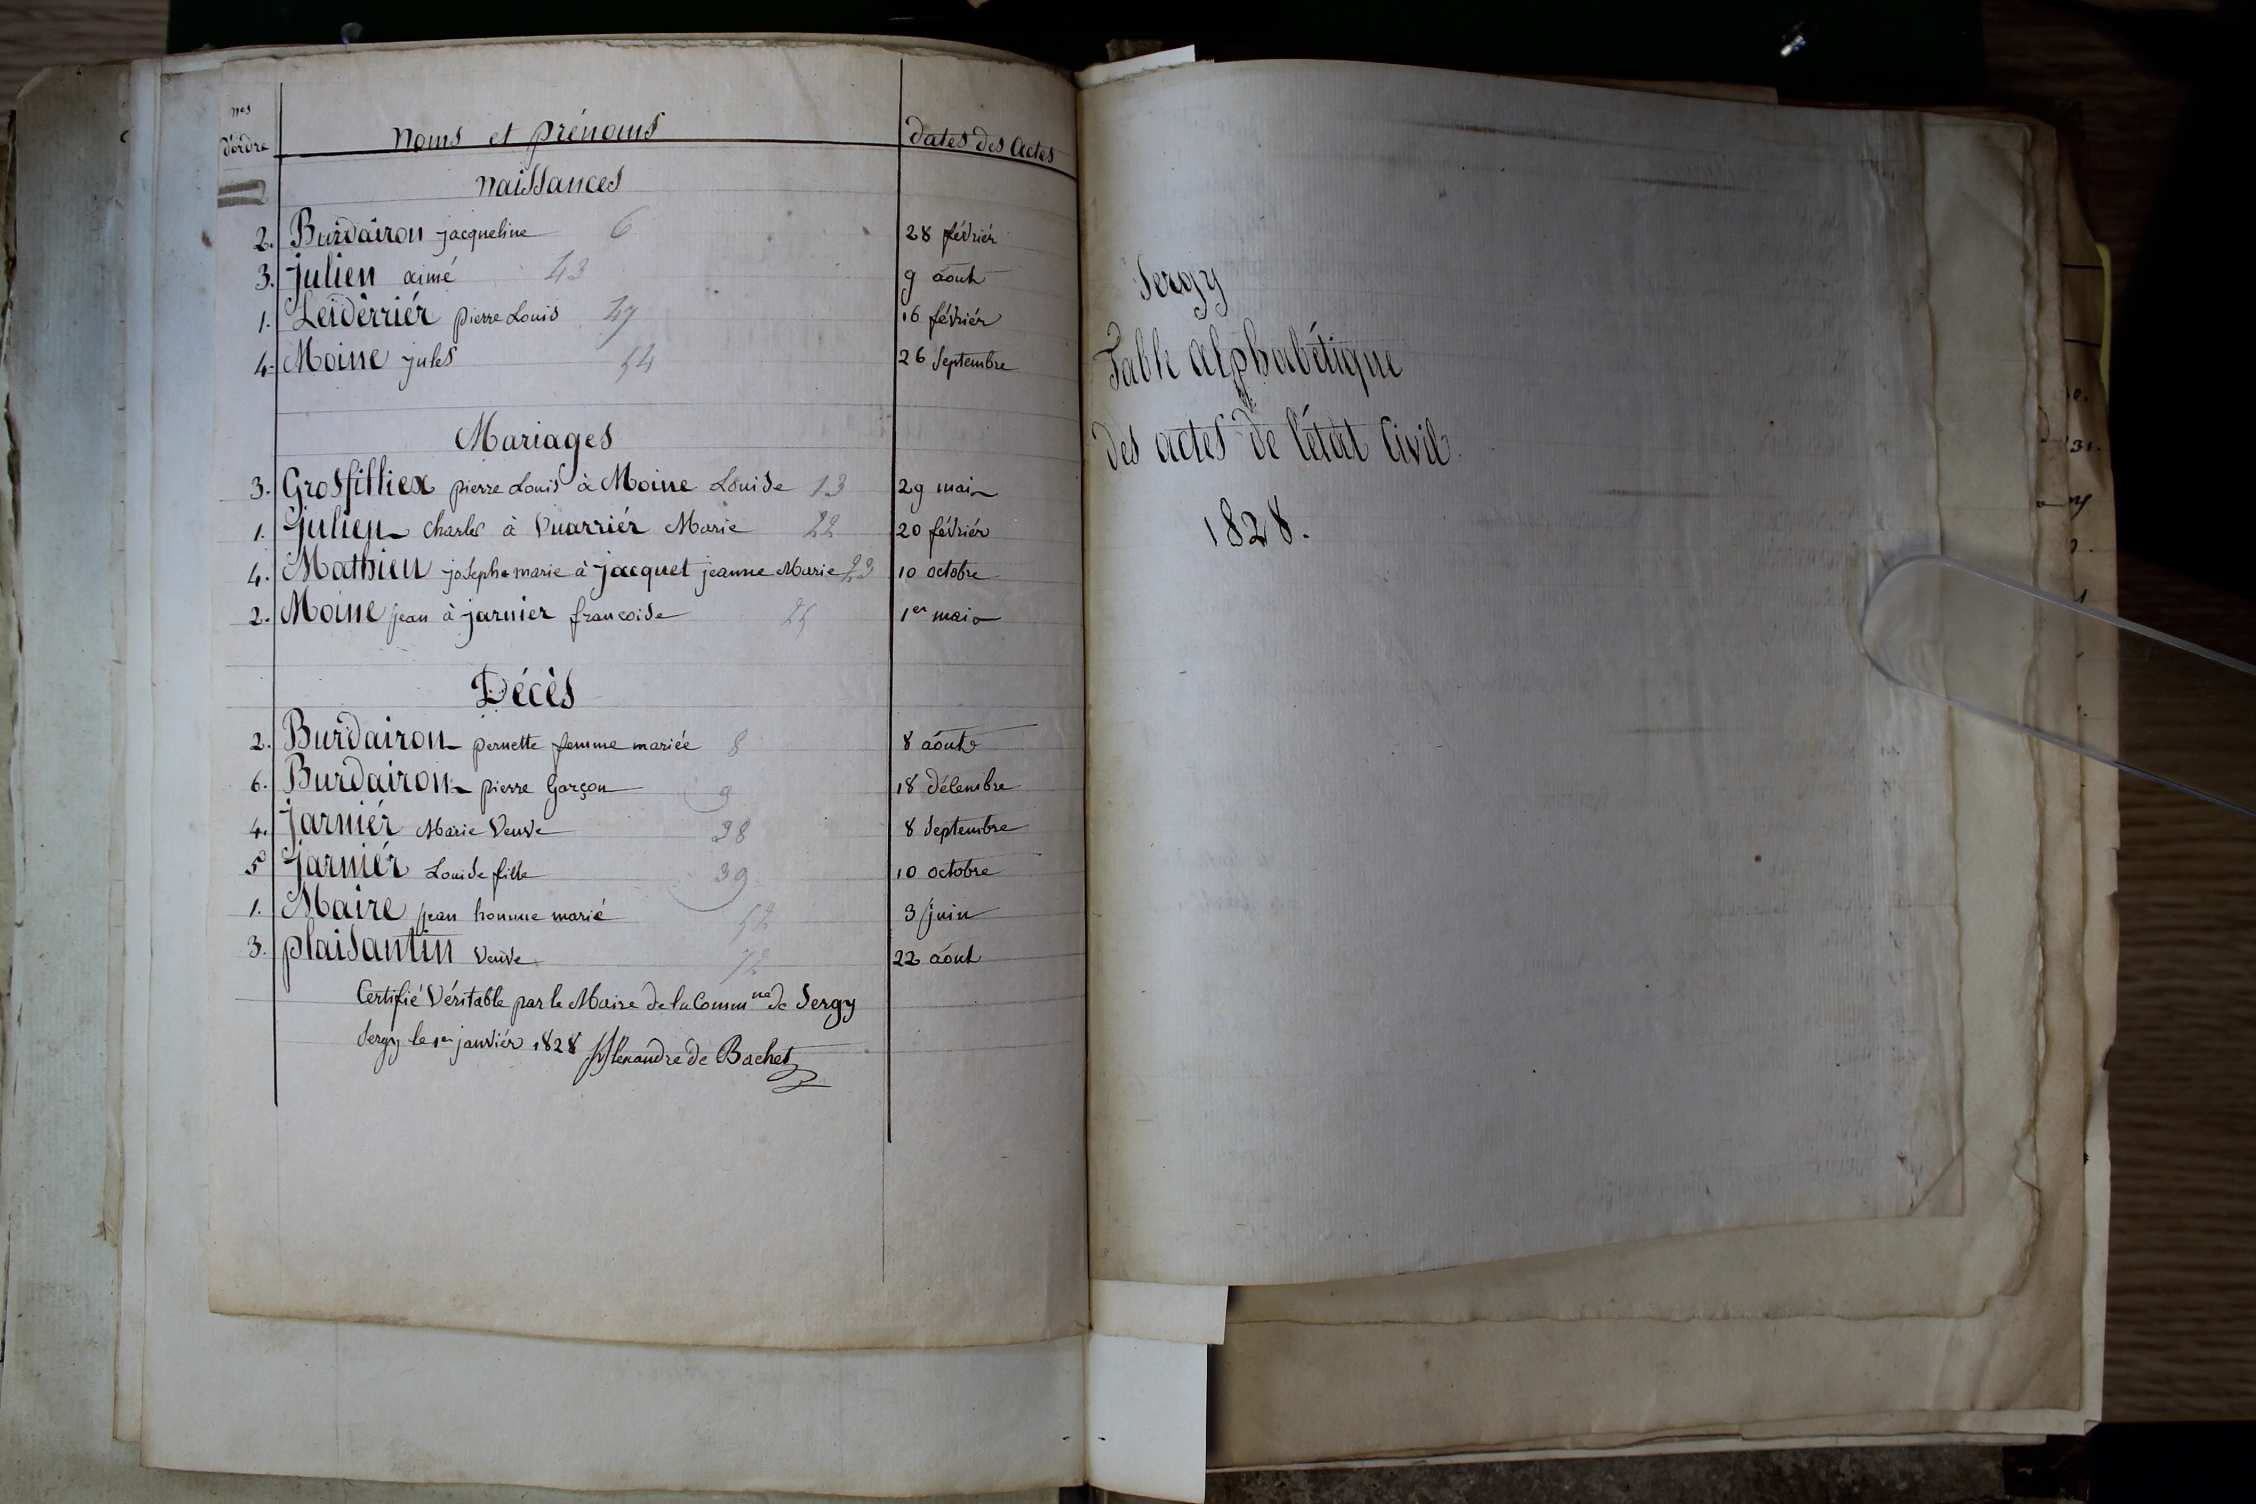 nos
d'ordre
Noms et prénoms
dates des Actes
Naissances
2. Burdairon jacqueline 6 28 février
3. julien aimé 43 9 août
1. Leidèrrier pierre Louis 47 16 février
4. Moine jules 54 26 Septembre
Mariages
3. Grosfilliex pierre Louis à Moine Louise 13 29 mai
1. julien charles à Vuarrier Marie 22 20 février
4. Mathieu joseph marie à jacquet jeanne Marie 23 10 octobre
2. Moine jean à jarnier francoise 25 1er mai
Décès
2. Burdairon pernette femme mariée 8 8 août
6. Burdairon pierre Garçon 9 18 décembre
4. jarniér Marie Veuve 38 8 Septembre
5 jarniér Louise fille 39 10 octobre
1. Maire jean homme marié 52 3 juin
3. plaisantin Veuve 72 22 août
Certifié Véritable par le Maire de la Commne de Sergy
Sergy le 1er janviér 1828 Alexandre de Bachet
Sergy
Table alphabétique
des actes de l'état Civil
1828.